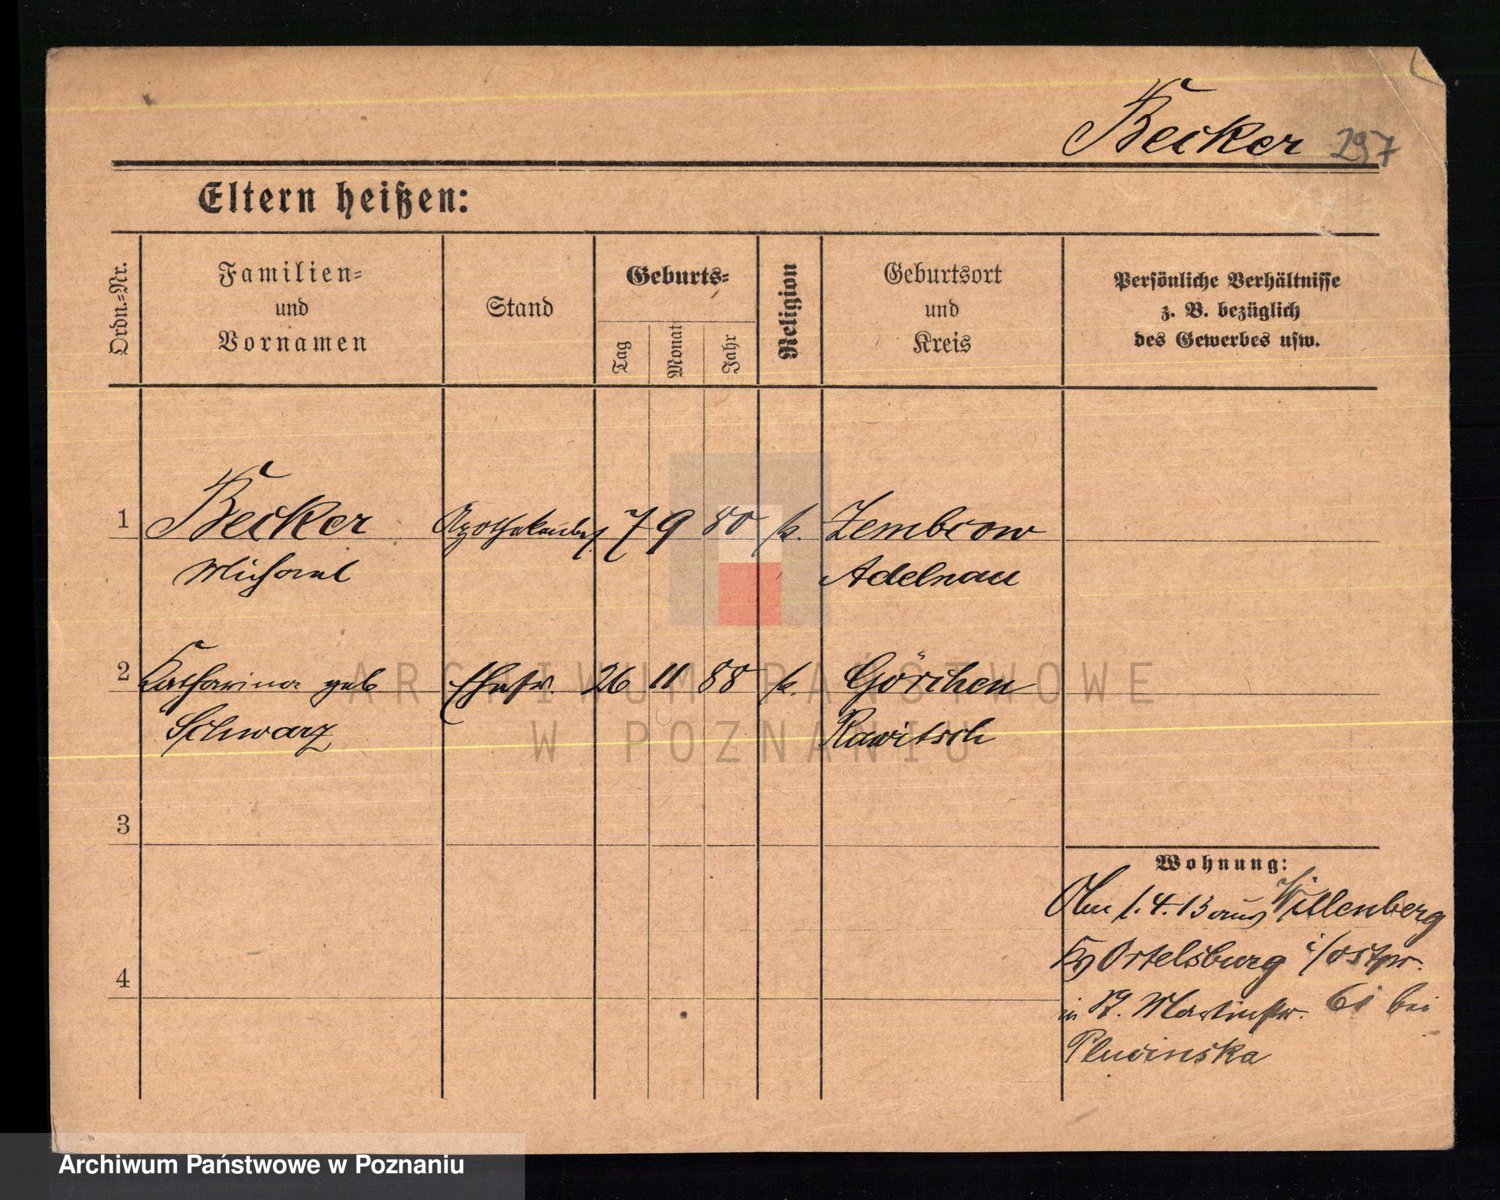 Becker 297
Eltern heißen:
Ordn.-Nr.
Familien-
und
Vornamen
Stand
Geburts-
Tag
Monat
Jahr
Religion
Geburtsort
und
Kreis
Persönliche Verhältnisse
z. B. bezüglich
des Gewerbes usw.
1 Becker 7 9 80 k. Zembrow
Michael Adelnau
2 Katharina geb Ehefr. 26 11 88 k. Görchen
Schwarz Rawitsch
3
4
Wohnung:
1.4.13 aus Willenberg
Ortelsburg i/Ostpr.
in St. Martinstr. 61 bei
Pluvinska
ARCHIWUM PAŃSTWOWE
W POZNANIU
Archiwum Państwowe w Poznaniu